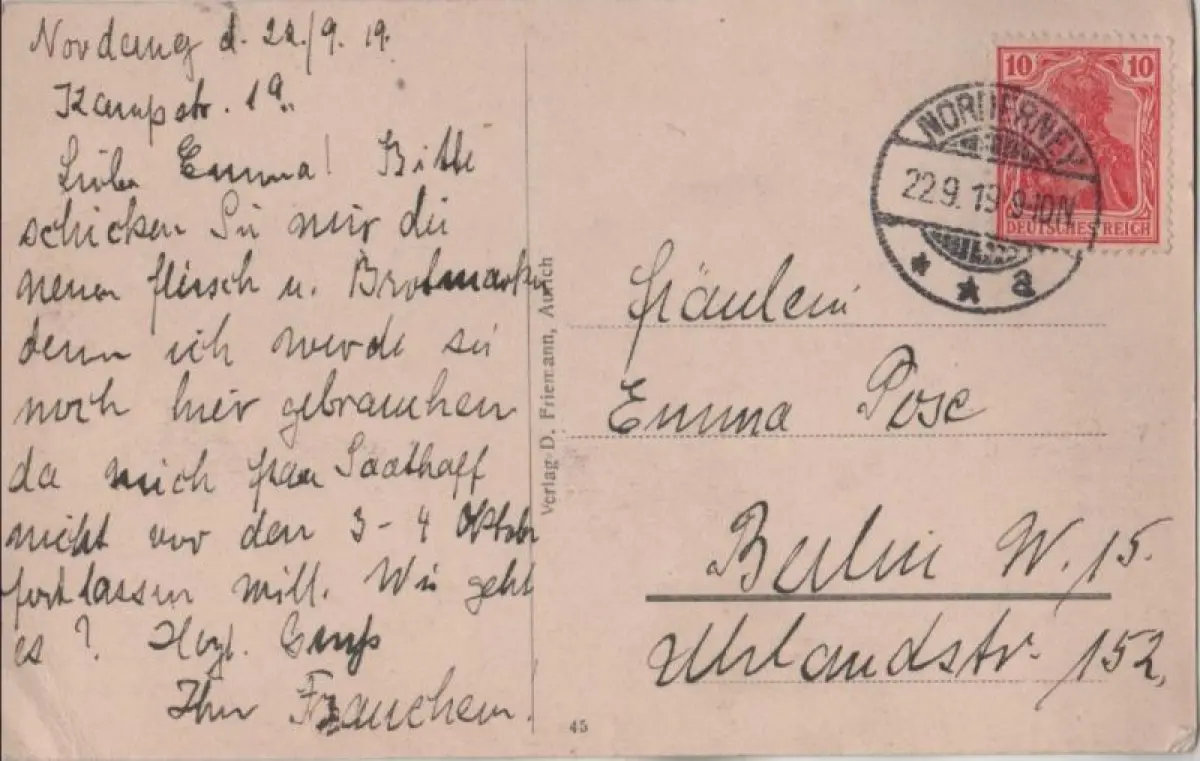 d. 22./9. 19.
Kampstr. 19.
Liebe Emma! Bitte
schicken Sie mir die
neuen fleisch u. Brotmarken
denn ich werde sie
noch hier gebrauchen
da mich frau Saathoff
nicht vor den 3-4 Oktober
fortlassen will. Wie geht
es? Hrzl. Gruß
Ihr
Verlag D. Friemann, Aurich
45
10 10
DEUTSCHES REICH
NORDERNEY
22.9.19 9-10N.
* * a
Fräulein
Emma Pose
Berlin W. 15.
Uhlandstr. 152.